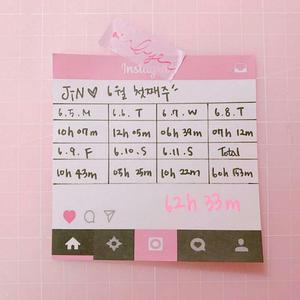 Instagram
JiN♡ 6월 첫째주
6.5.M 6.6.T 6.7.W 6.8.T
10h 07m 12h 05m 06h 39m 07h 12m
6.9.F 6.10.S 6.11.S Total
10h 43m 05h 25m 10h 22m 60h 153m
62h 33m